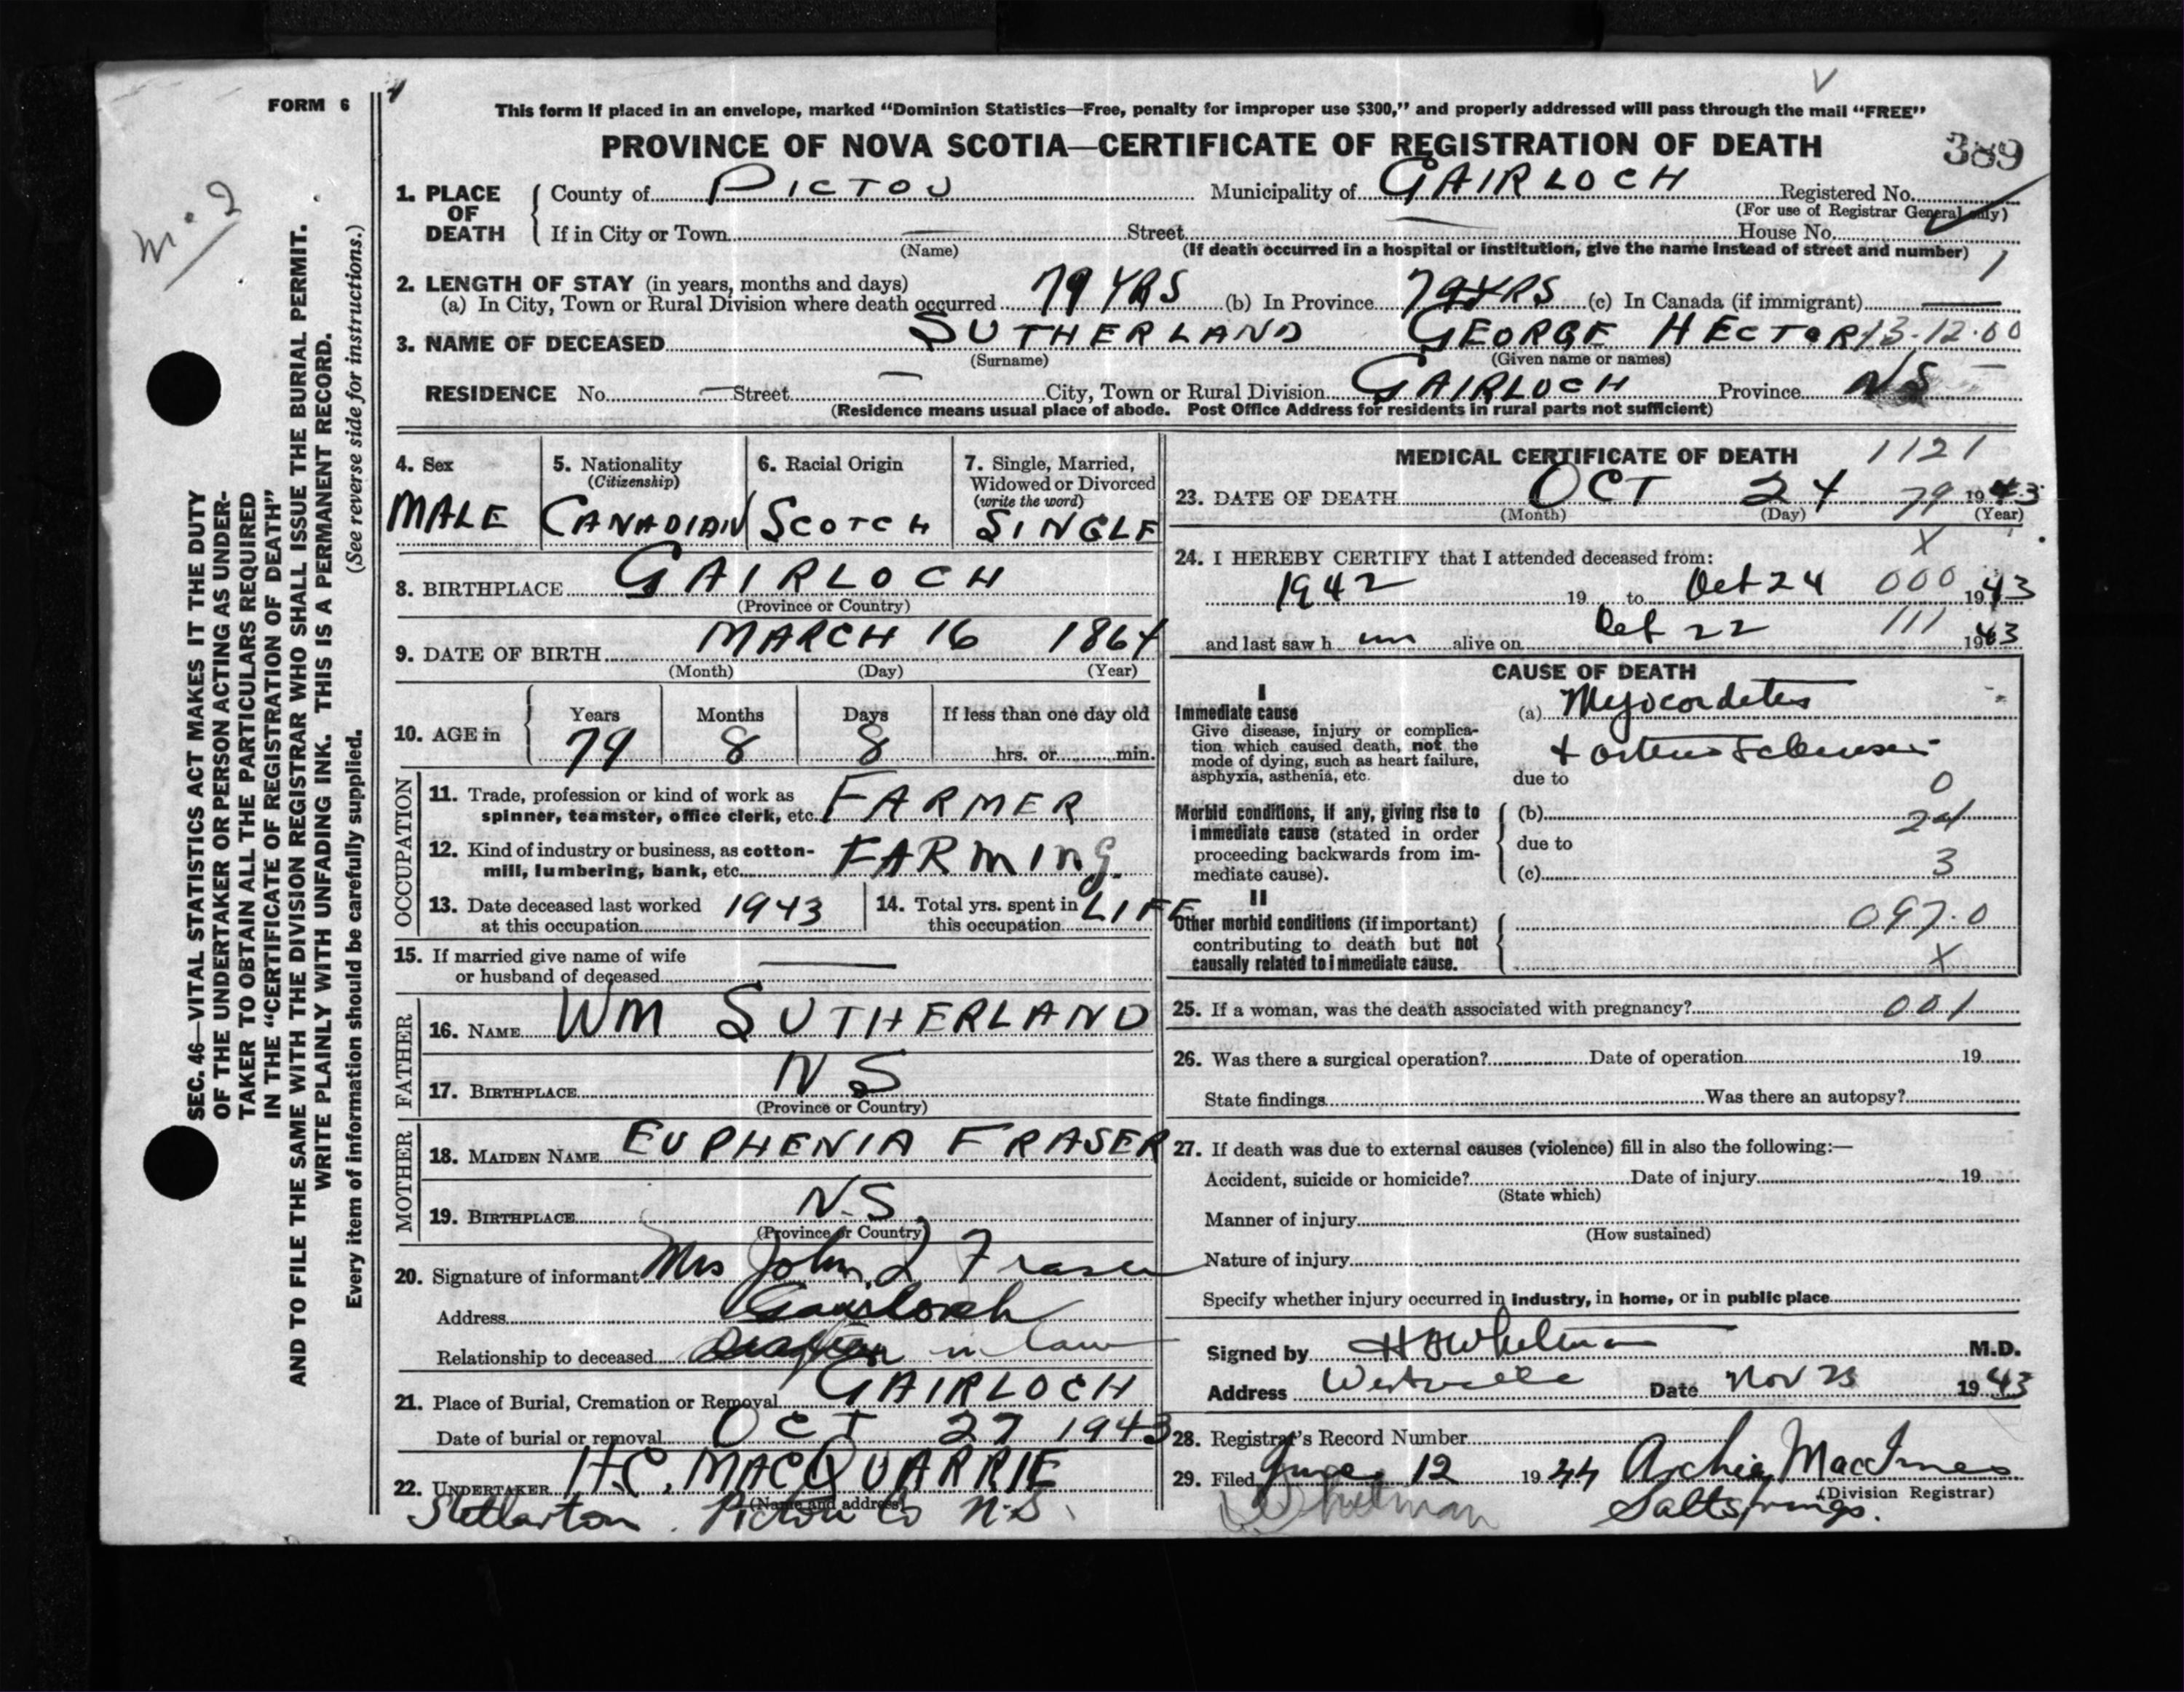 FORM 6
This form if placed in an envelope, marked “Dominion Statistics—Free, penalty for improper use $300,” and properly addressed will pass through the mail “FREE”
PROVINCE OF NOVA SCOTIA—CERTIFICATE OF REGISTRATION OF DEATH
389
m. 2
SEC. 46—VITAL STATISTICS ACT MAKES IT THE DUTY
OF THE UNDERTAKER OR PERSON ACTING AS UNDER-
TAKER TO OBTAIN ALL THE PARTICULARS REQUIRED
IN THE “CERTIFICATE OF REGISTRATION OF DEATH”
AND TO FILE THE SAME WITH THE DIVISION REGISTRAR WHO SHALL ISSUE THE BURIAL PERMIT.
WRITE PLAINLY WITH UNFADING INK. THIS IS A PERMANENT RECORD.
Every item of information should be carefully supplied. (See reverse side for instructions.)
1. PLACE OF DEATH County of PICTOU Municipality of GAIRLOCH Registered No.
(For use of Registrar General only)
If in City or Town — Street — House No.
(Name) (If death occurred in a hospital or institution, give the name instead of street and number)
1
2. LENGTH OF STAY (in years, months and days)
(a) In City, Town or Rural Division where death occurred 79 YRS (b) In Province 79 YRS (c) In Canada (if immigrant) —
3. NAME OF DECEASED SUTHERLAND GEORGE HECTOR 13-12-00
(Surname) (Given name or names)
RESIDENCE No. — Street — City, Town or Rural Division GAIRLOCH Province NS
(Residence means usual place of abode. Post Office Address for residents in rural parts not sufficient)
4. Sex 5. Nationality 6. Racial Origin 7. Single, Married,
(Citizenship) Widowed or Divorced
(write the word)
MALE CANADIAN SCOTCH SINGLE
8. BIRTHPLACE GAIRLOCH
(Province or Country)
9. DATE OF BIRTH MARCH 16 1864
(Month) (Day) (Year)
10. AGE in Years Months Days If less than one day old
79 8 8 hrs. or min.
OCCUPATION
11. Trade, profession or kind of work as
spinner, teamster, office clerk, etc. FARMER
12. Kind of industry or business, as cotton-
mill, lumbering, bank, etc. FARMING.
13. Date deceased last worked 1943 14. Total yrs. spent in LIFE
at this occupation this occupation
15. If married give name of wife
or husband of deceased —
FATHER
16. NAME WM SUTHERLAND
17. BIRTHPLACE N S
(Province or Country)
MOTHER
18. MAIDEN NAME EUPHENIA FRASER
19. BIRTHPLACE N.S.
(Province or Country)
20. Signature of informant Mrs John Fraser
Address Gairloch
Relationship to deceased in law
21. Place of Burial, Cremation or Removal GAIRLOCH
Date of burial or removal OCT 27 1943
22. UNDERTAKER H.C. MACQUARRIE
(Name and address)
Stellarton Pictou Co N.S.
MEDICAL CERTIFICATE OF DEATH 1121
23. DATE OF DEATH OCT 24 79 1943
(Month) (Day) (Year)
X
24. I HEREBY CERTIFY that I attended deceased from:
1942 19 to Oct 24 000 1943
and last saw h im alive on Oct 22 111 1943
CAUSE OF DEATH
I
Immediate cause
Give disease, injury or complica-
tion which caused death, not the
mode of dying, such as heart failure,
asphyxia, asthenia, etc.
(a) Myocordetis
due to
0
Morbid conditions, if any, giving rise to
immediate cause (stated in order
proceeding backwards from im-
mediate cause).
(b) 24
due to
(c) 3
II
Other morbid conditions (if important)
contributing to death but not
causally related to immediate cause.
097.0
X
25. If a woman, was the death associated with pregnancy? 001
26. Was there a surgical operation? Date of operation 19
State findings Was there an autopsy?
27. If death was due to external causes (violence) fill in also the following:—
Accident, suicide or homicide? Date of injury 19
(State which)
Manner of injury
(How sustained)
Nature of injury
Specify whether injury occurred in industry, in home, or in public place
Signed by Whitman M.D.
Address Westville Date Nov 23 1943
28. Registrar's Record Number
29. Filed June 12 1944 Archie MacInnes
(Division Registrar)
Whitman Saltsprings.